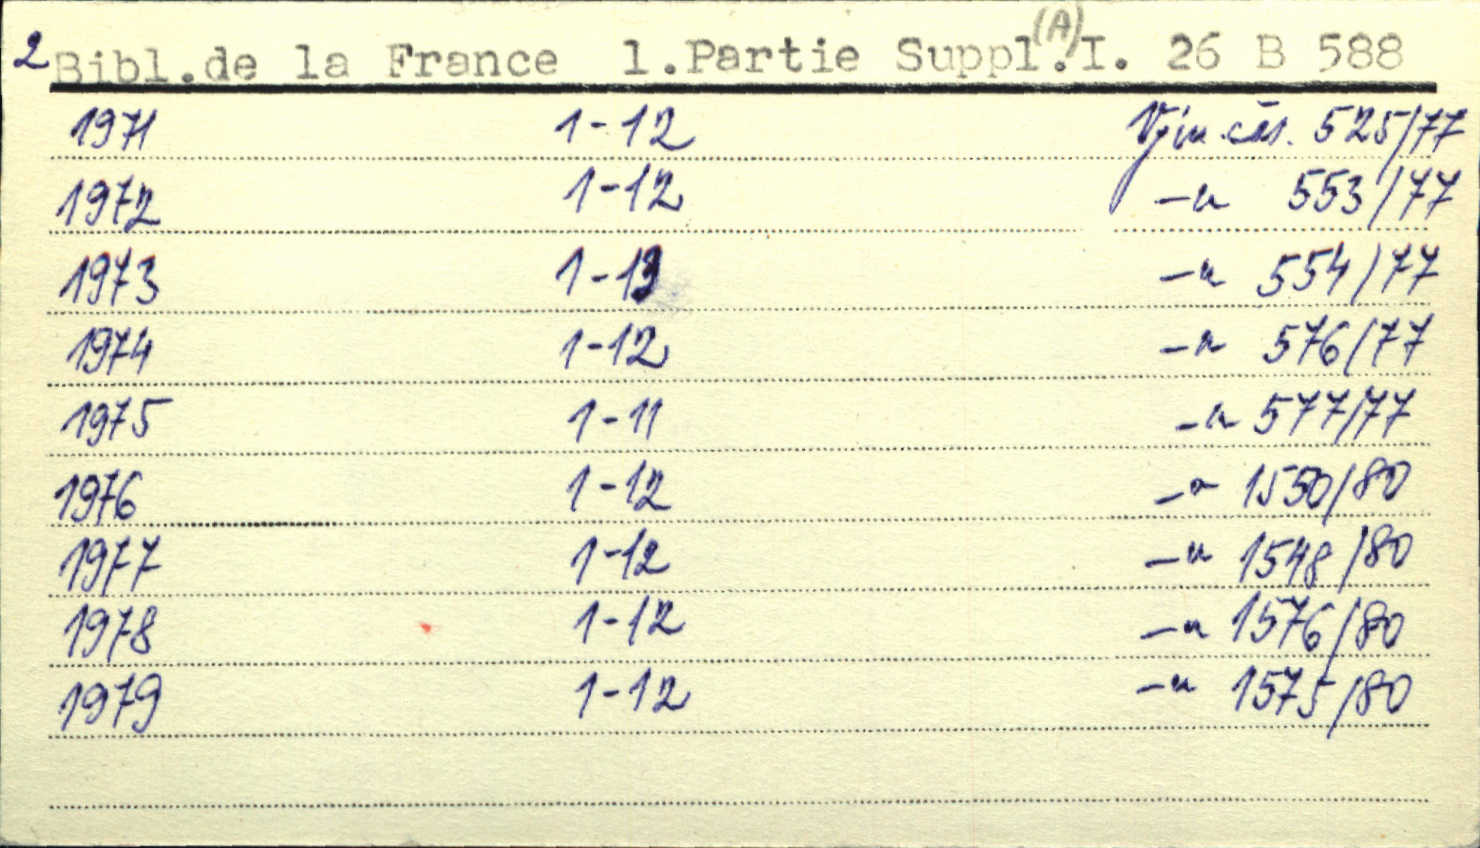 2 Bibl.de la France 1.Partie Suppl.(A)I. 26 B 588
1971 1-12 Vým. čes. 525/77
1972 1-12 -"- 553/77
1973 1-13 -"- 554/77
1974 1-12 -"- 576/77
1975 1-11 -"- 577/77
1976 1-12 -"- 1550/80
1977 1-12 -"- 1548/80
1978 1-12 -"- 1576/80
1979 1-12 -"- 1575/80